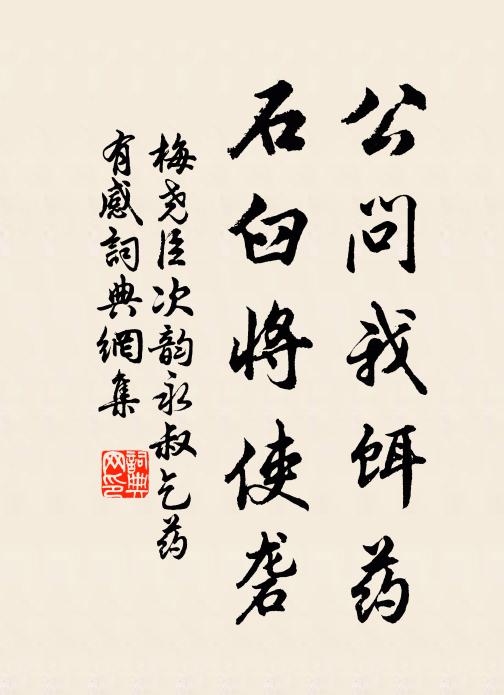 公问我饵药
石臼将使砻
梅尧臣次韵永叔乞药
有感詞典網集
詞典
网印